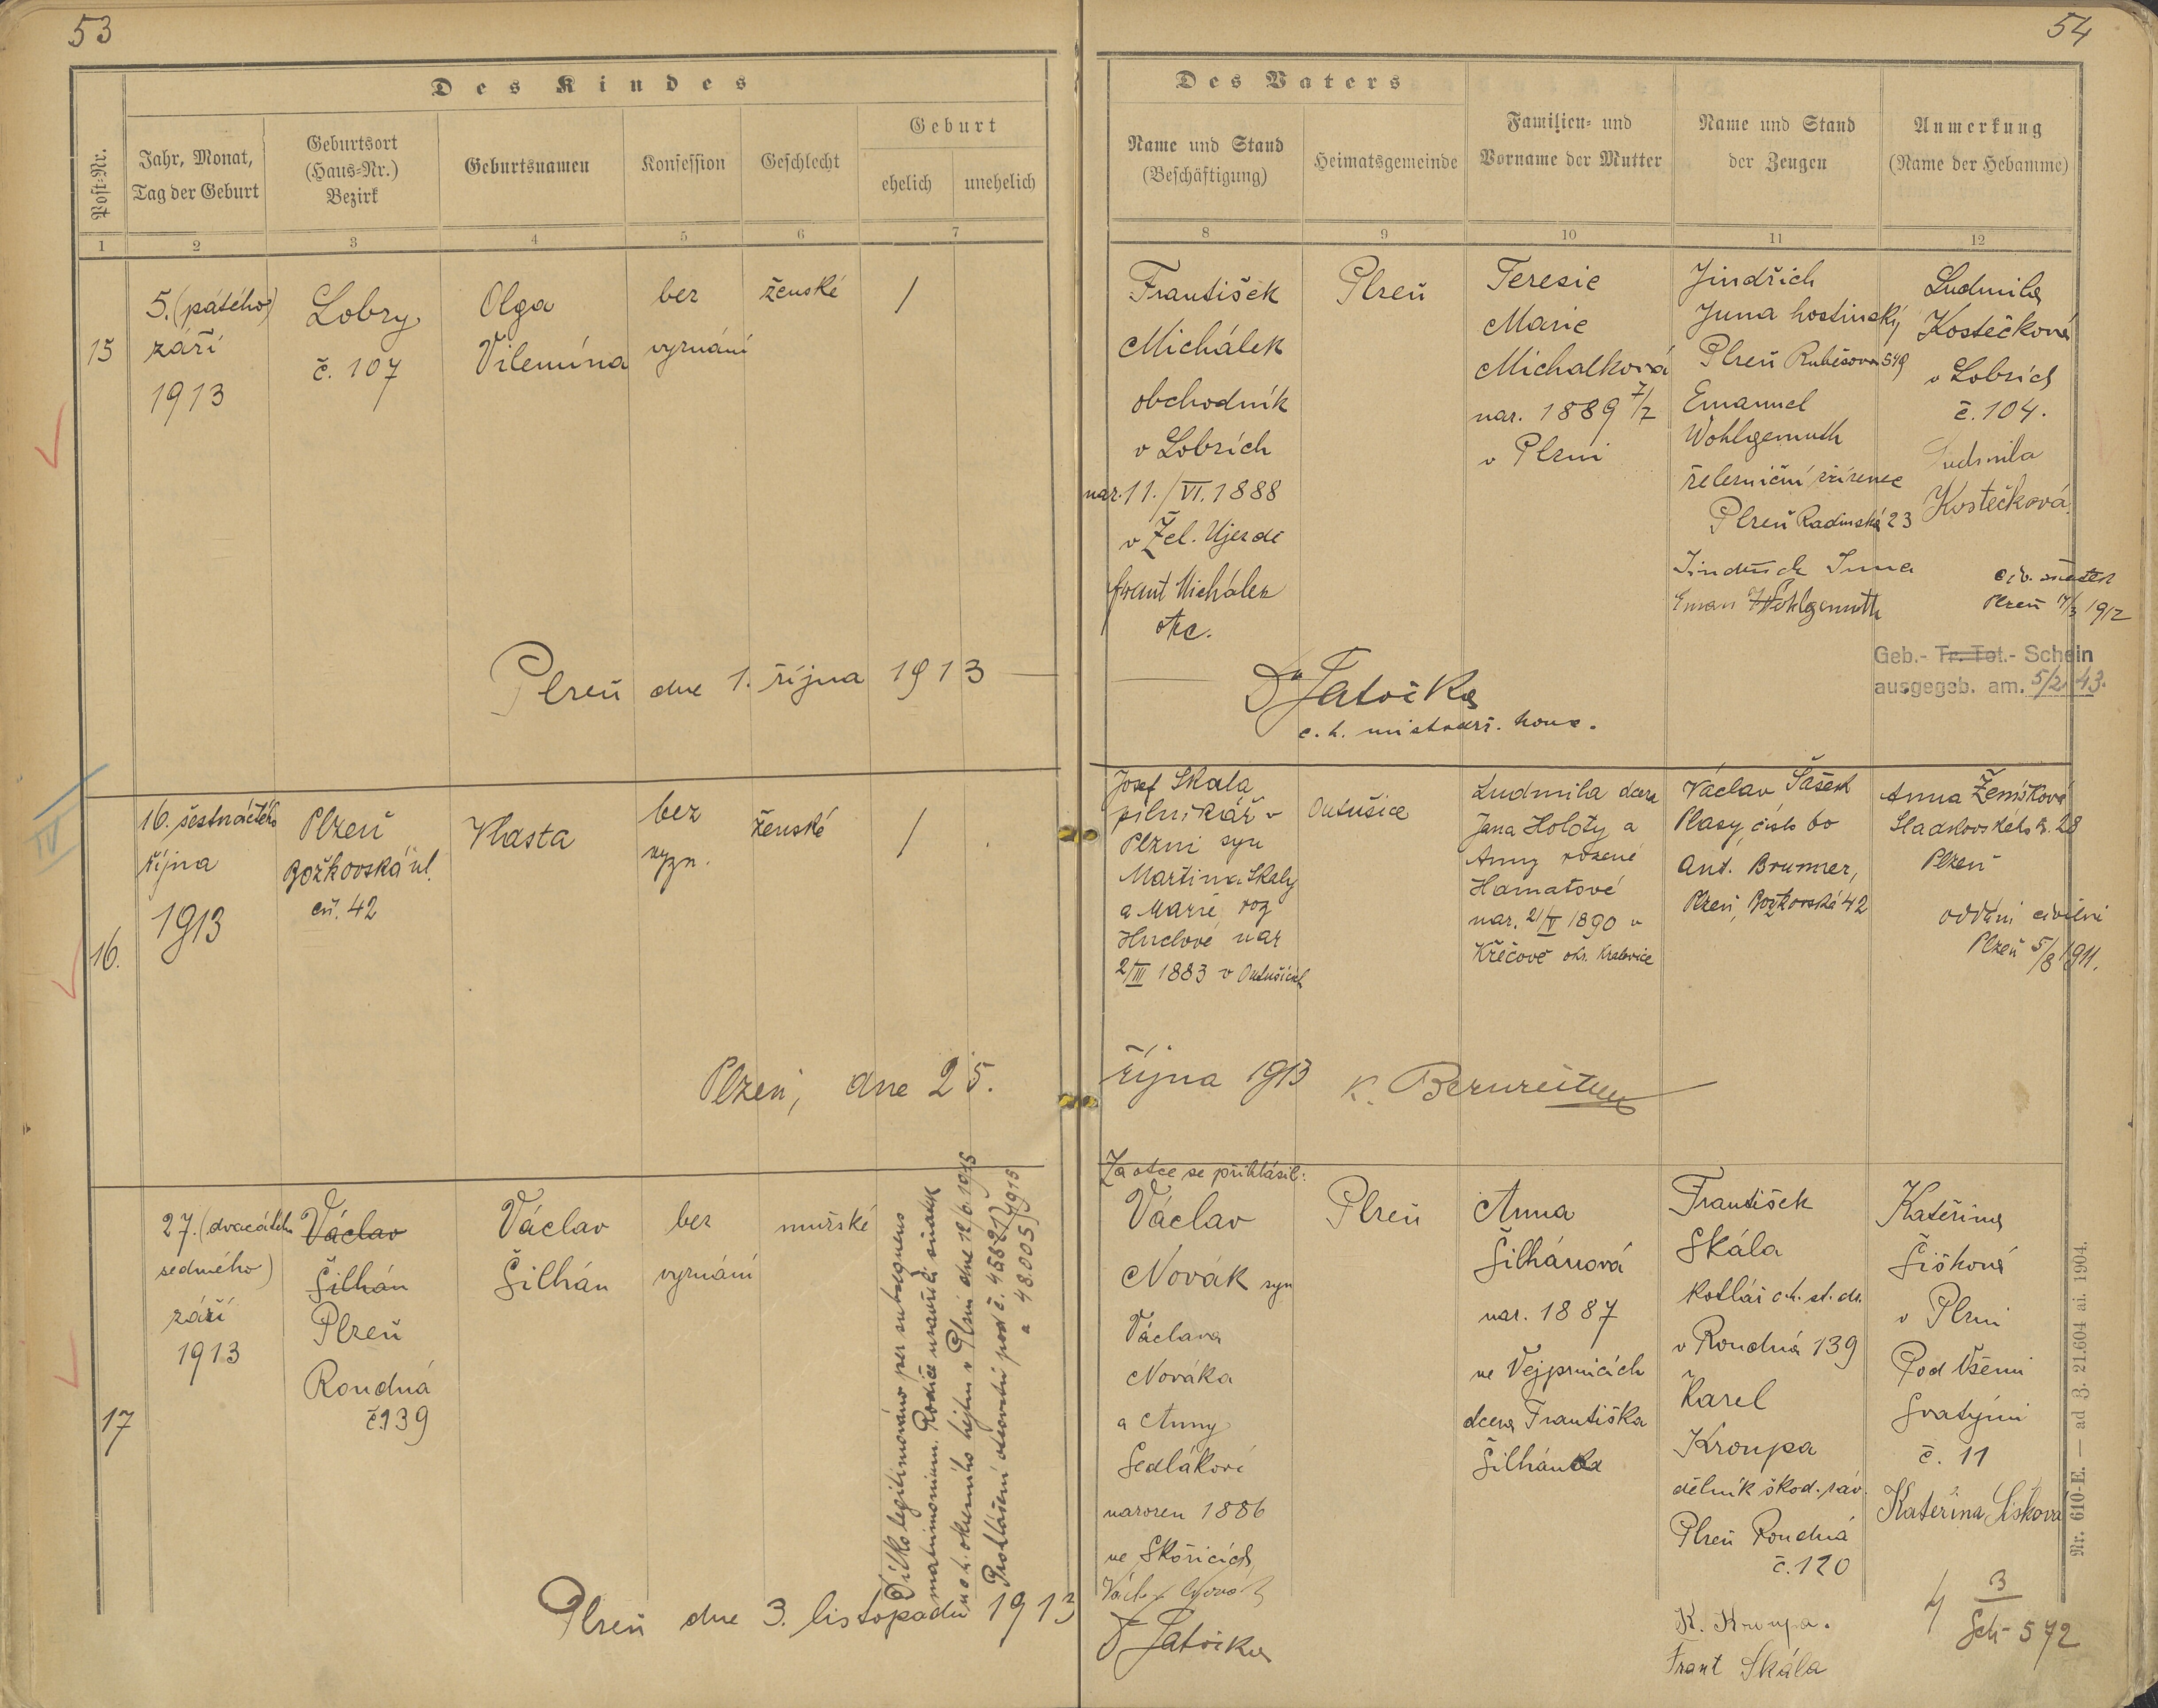 53
54
Des Kindes
Post-Nr.
Jahr, Monat,
Tag der Geburt
Geburtsort
(Haus-Nr.)
Bezirk
Geburtsnamen
Konfession
Geschlecht
Geburt
ehelich
unehelich
Des Vaters
Name und Stand
(Beschäftigung)
Heimatsgemeinde
Familien- und
Vorname der Mutter
Name und Stand
der Zeugen
Anmerkung
(Name der Hebamme)
1
2
3
4
5
6
7
8
9
10
11
12
15
5. (pátého)
září
1913
Lobzy
č. 107
Olga
Vilemína
bez
vyznání
ženské
/
František
Michálek
obchodník
v Lobzích
nar. 11./VI. 1888
v Žel. Újezdě
Frant Michálek
otec.
Plzeň
Teresie
Marie
Michalková
nar. 1889 7/7
v Plzni
Jindřich
Juna hostinský,
Plzeň Rubešova 549
Emanuel
Wohlgemuth
železniční zřízenec
Plzeň Radinská 23
Jindřich Juna
Eman Wohlgemuth
Ludmila
Kostečková
v Lobzích
č. 104.
Ludmila
Kostečková
civ. sňatek
Plzeň 17/3 1912
Geb.- Tr. Tot.- Schein
ausgegeb. am. 5/2 43.
Plzeň dne 1. října 1913
Dr Jatočka
c. k. místodrž. konc.
IV
16.
16. šestnáctého
října
1913
Plzeň
Božkovská ul.
čís. 42
Vlasta
bez
vyzn.
ženské
/
Josef Skala
pilnikář v
Plzni syn
Martina Skaly
a Marie roz
Huclové nar
2/III 1883 v Outušicích
Outušice
Ludmila dcera
Jana Holoty a
Anny rozené
Hamatové
nar. 21/V 1890 v
Křečově okr. Kralovice
Václav Šašek
Plasy číslo 60
Ant. Brunner,
Plzeň, Božkovská 42
Anna Žemíčková
Sladkovského č. 28
Plzeň
oddáni civilně
Plzeň 5/8 1911.
Plzeň, dne 25.
října 1913 K. Bernreiter
17
27. (dvacátého
sedmého)
září
1913
Václav
Šilhán
Plzeň
Rondná
č. 139
Václav
Šilhán
bez
vyznání
mužské
Dítko legitimováno per subsequens
matrimonium. Rodiče uzavřeli sňatek
u c. k. okresního hejtm. v Plzni dne 12/6. 1915
Prohlášení otcovství pod č. 45821/1915
a 48.005/1915
Za otce se přihlásil:
Václav
Novák syn
Václava
Nováka
a Anny
Sedlákové
narozen 1886
ve Skořicích
Plzeň
Anna
Šilhánová
nar. 1887
ve Vejprnicích
dcera Františka
Šilhána
František
Skála
kotlář c. k. st. dr.
v Rondná 139
Karel
Kroupa
dělník škod. záv.
Plzeň Rondná
č. 120
K. Kroupa.
Frant Skála
Kateřina
Šišková
v Plzni
Pod Všemi
Svatými
č. 11
Kateřina Šišková
Plzeň dne 3. listopadu 1913
Dr Jatočka
3
Sch 572
Nr. 610-E. — ad Z. 21.604 ai. 1904.